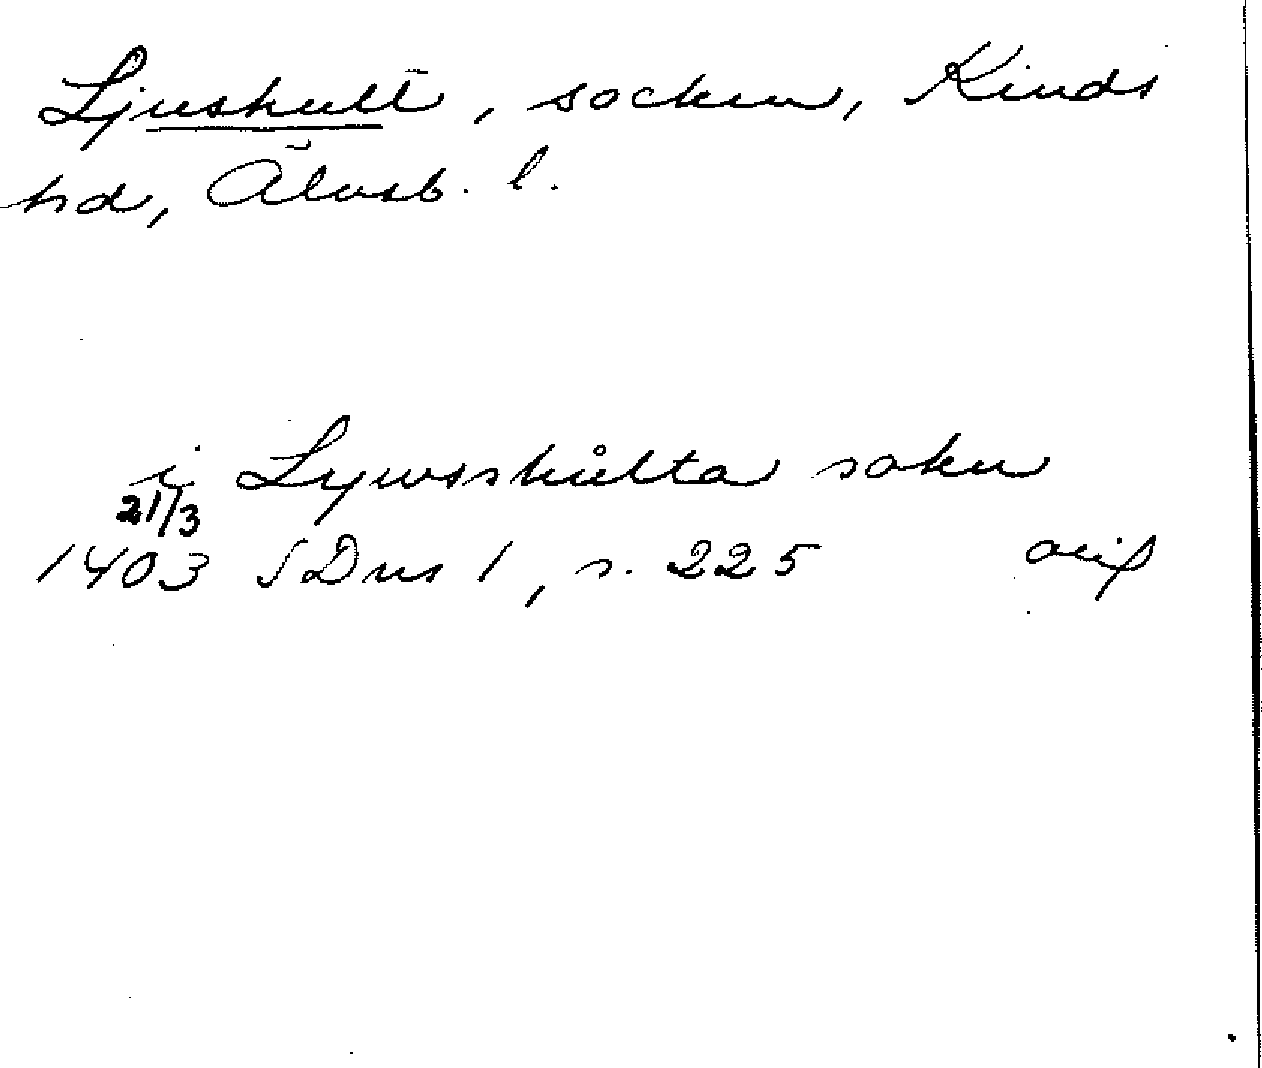 Ljushult, socken, Kinds
hd, Älvsb. l.
i Lywsshulta sokn
21/3
1403 SDns 1, s. 225 avsk